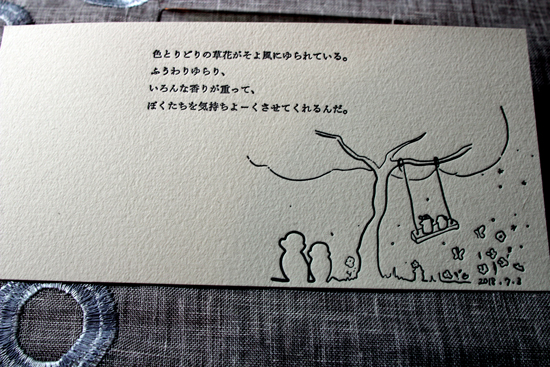 色とりどりの草花がそよ風にゆられている。
ふうわりゆらり、
いろんな香りが重って、
ぼくたちを気持ちよーくさせてくれるんだ。
2018.7.3